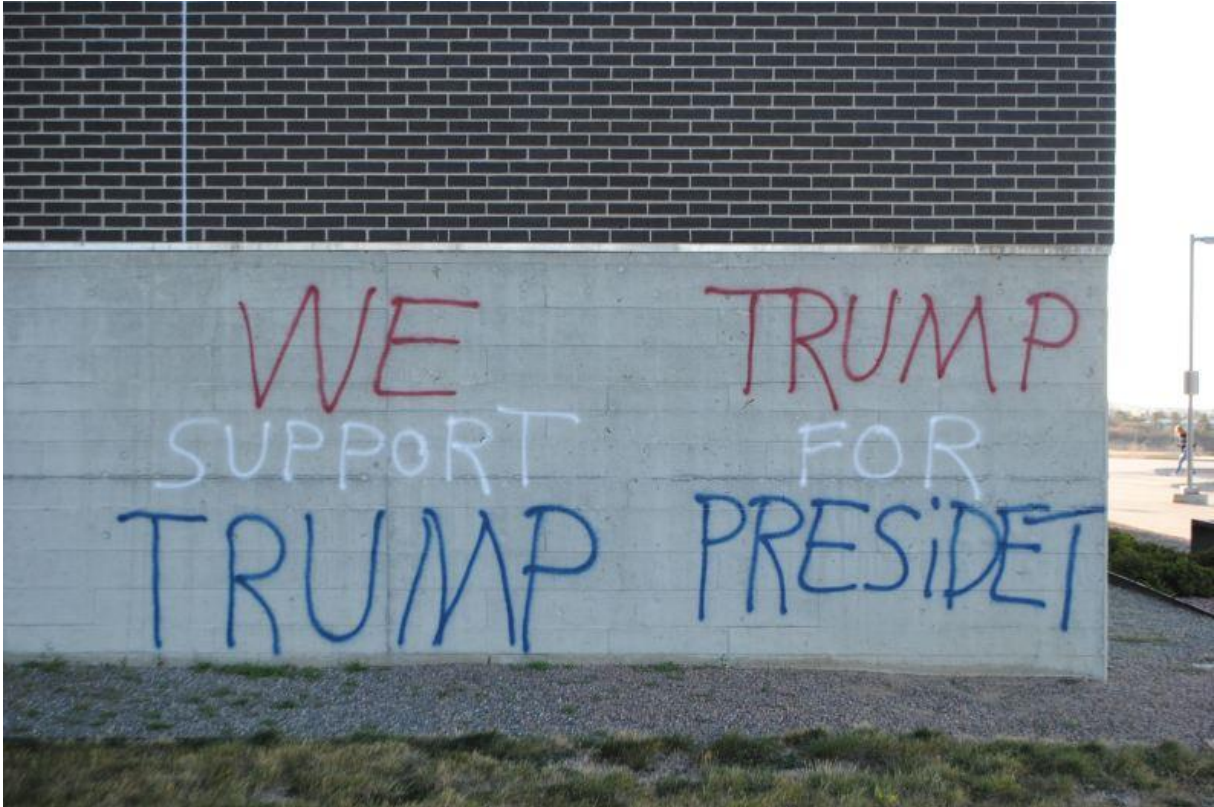 WE
SUPPORT
TRUMP
TRUMP
FOR
PRESiDET